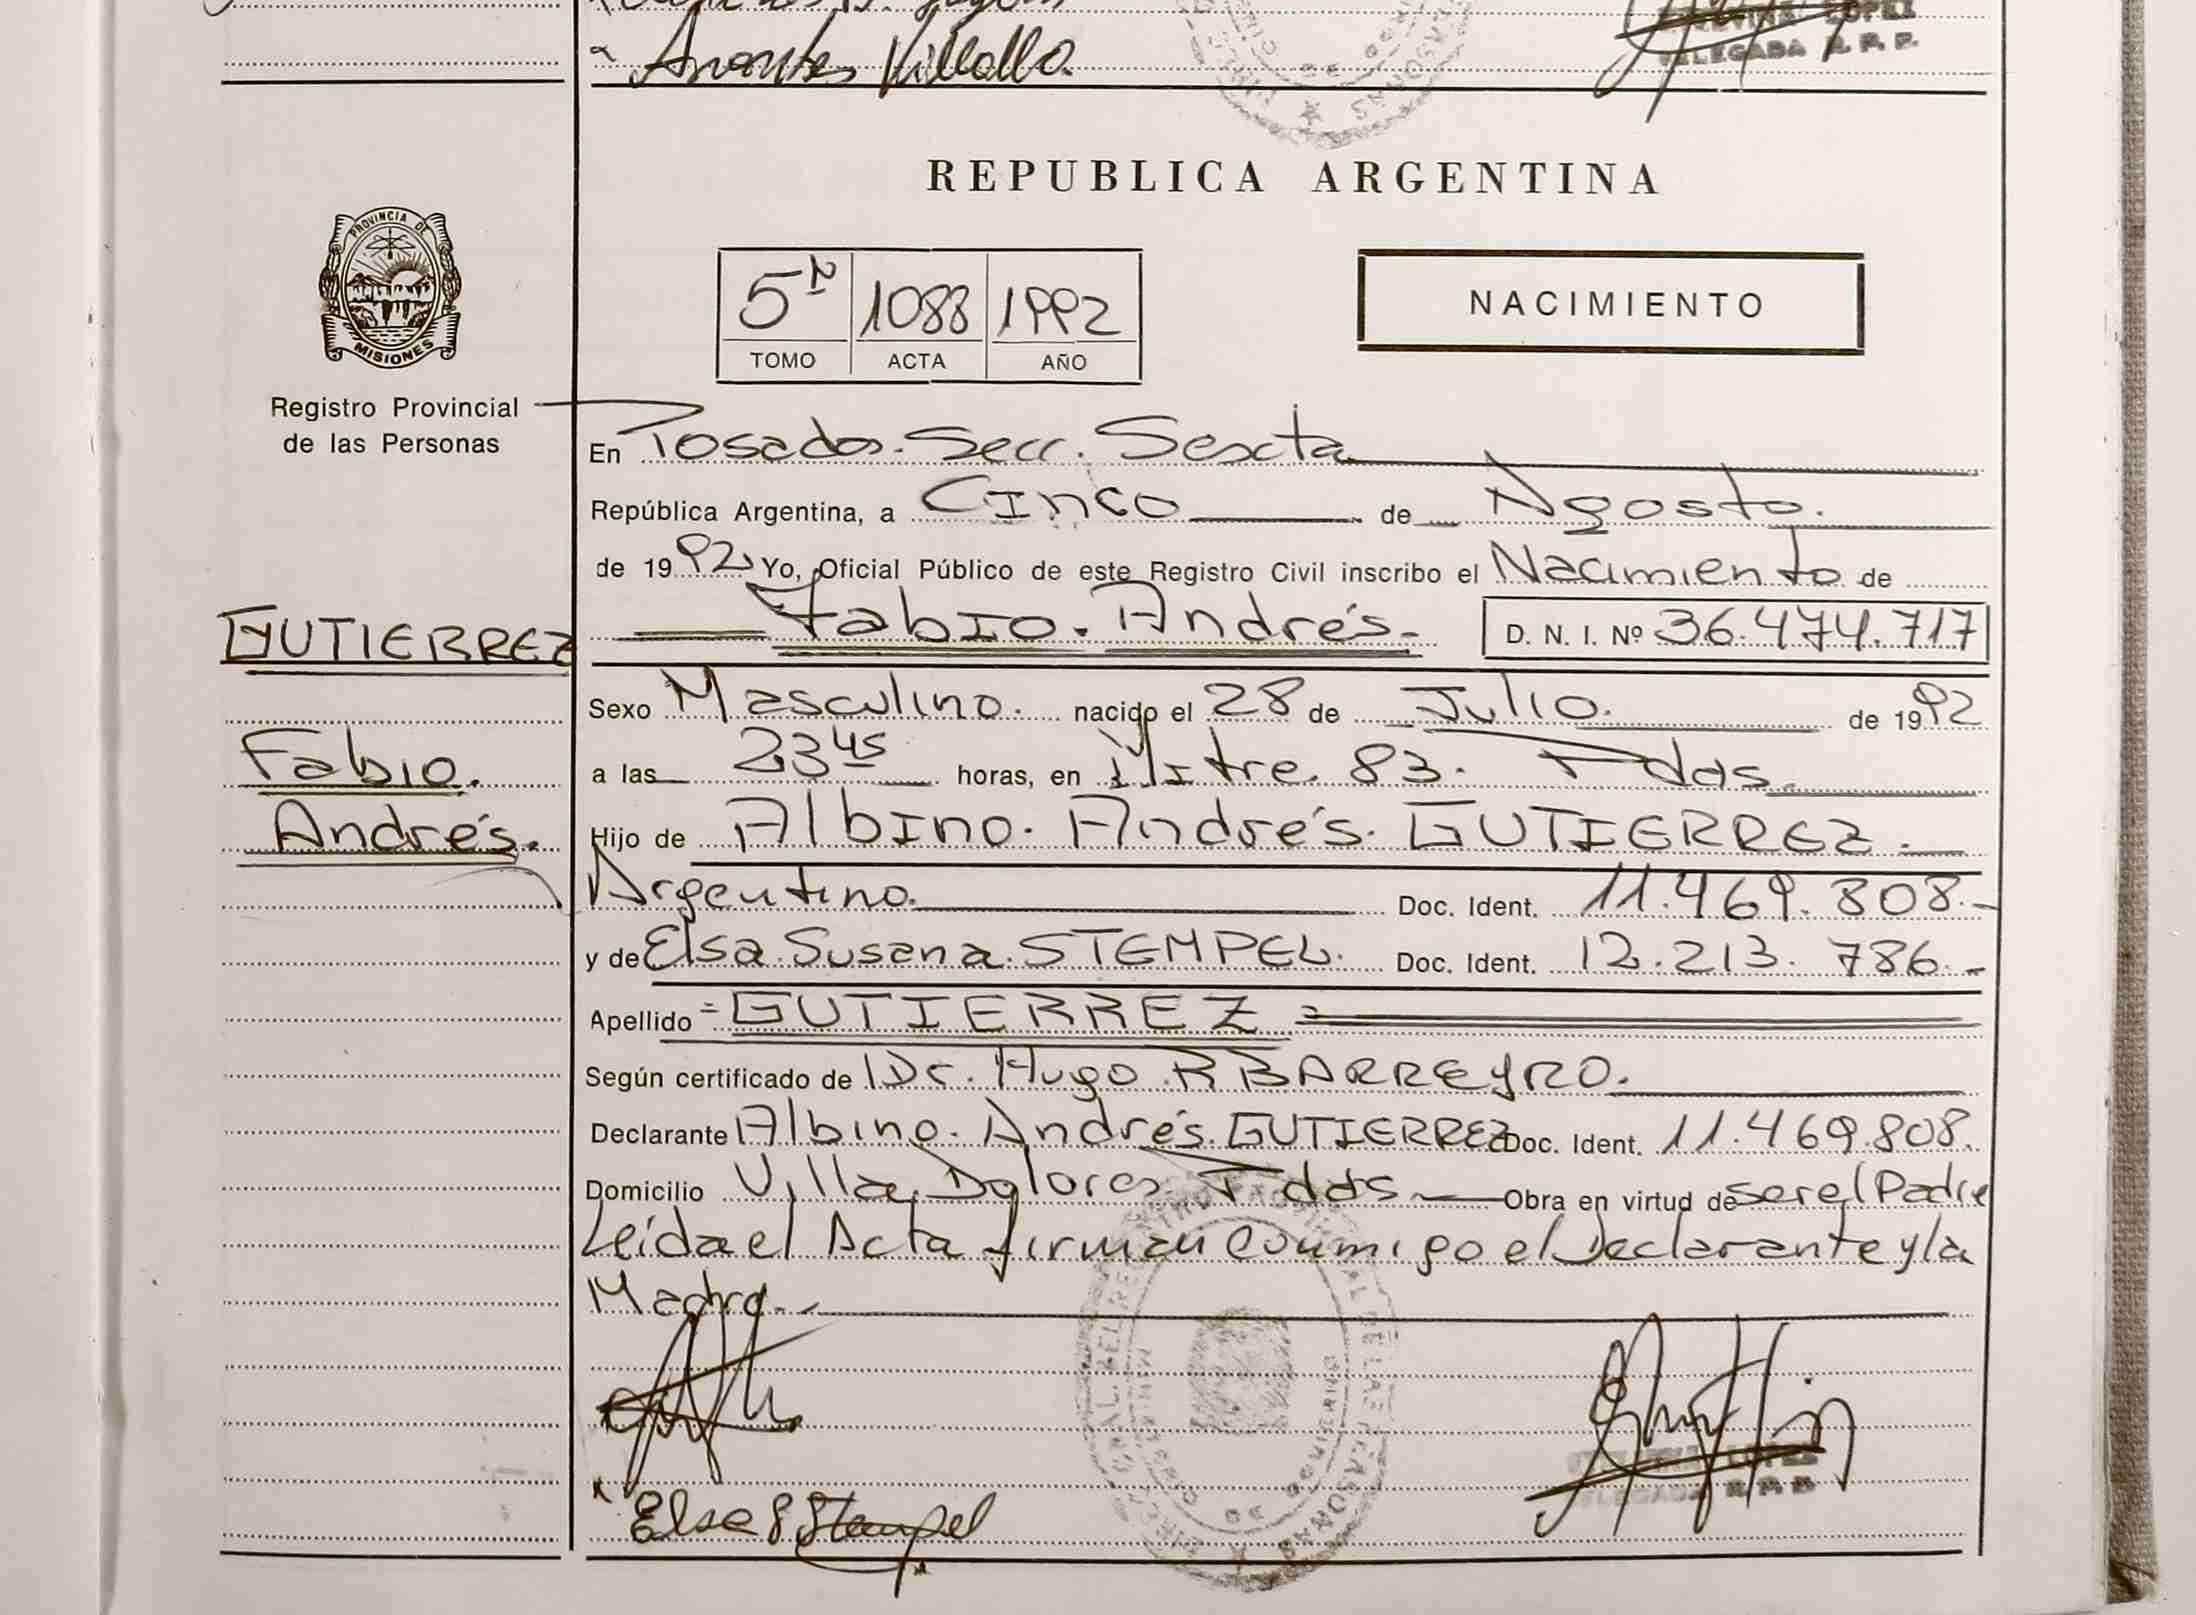 Arantes Villalba.
LOPEZ
DELEGADA R. P. P.
REPUBLICA ARGENTINA
PROVINCIA DE
MISIONES
Registro Provincial
de las Personas
5º 1088 1992
TOMO ACTA AÑO
NACIMIENTO
En Posadas. Secc. Sexta
República Argentina, a Cinco de Agosto.
de 1992 Yo, Oficial Público de este Registro Civil inscribo el Nacimiento de
GUTIERREZ
Fabio. Andrés. D. N. I. Nº 36.474.717
Sexo Masculino. nacido el 28 de Julio. de 1992
Fabio.
a las 23 45 horas, en Mitre. 83. Pdas.
Andrés.
Hijo de Albino. Andrés. GUTIERREZ.
Argentino. Doc. Ident. 11.469.808.-
y de Elsa. Susana. STEMPEL. Doc. Ident. 12.213.786.-
Apellido = GUTIERREZ =
Según certificado de Dr. Hugo R BARREYRO.
Declarante Albino. Andrés. GUTIERREZ Doc. Ident. 11.469.808.
Domicilio Villa Dolores Pdas Obra en virtud de ser el Padre
Leida el Acta firman conmigo el Declarante y la
Madre.-
Elsa S Stempel
LOPEZ
DELEGADA R. P. P.